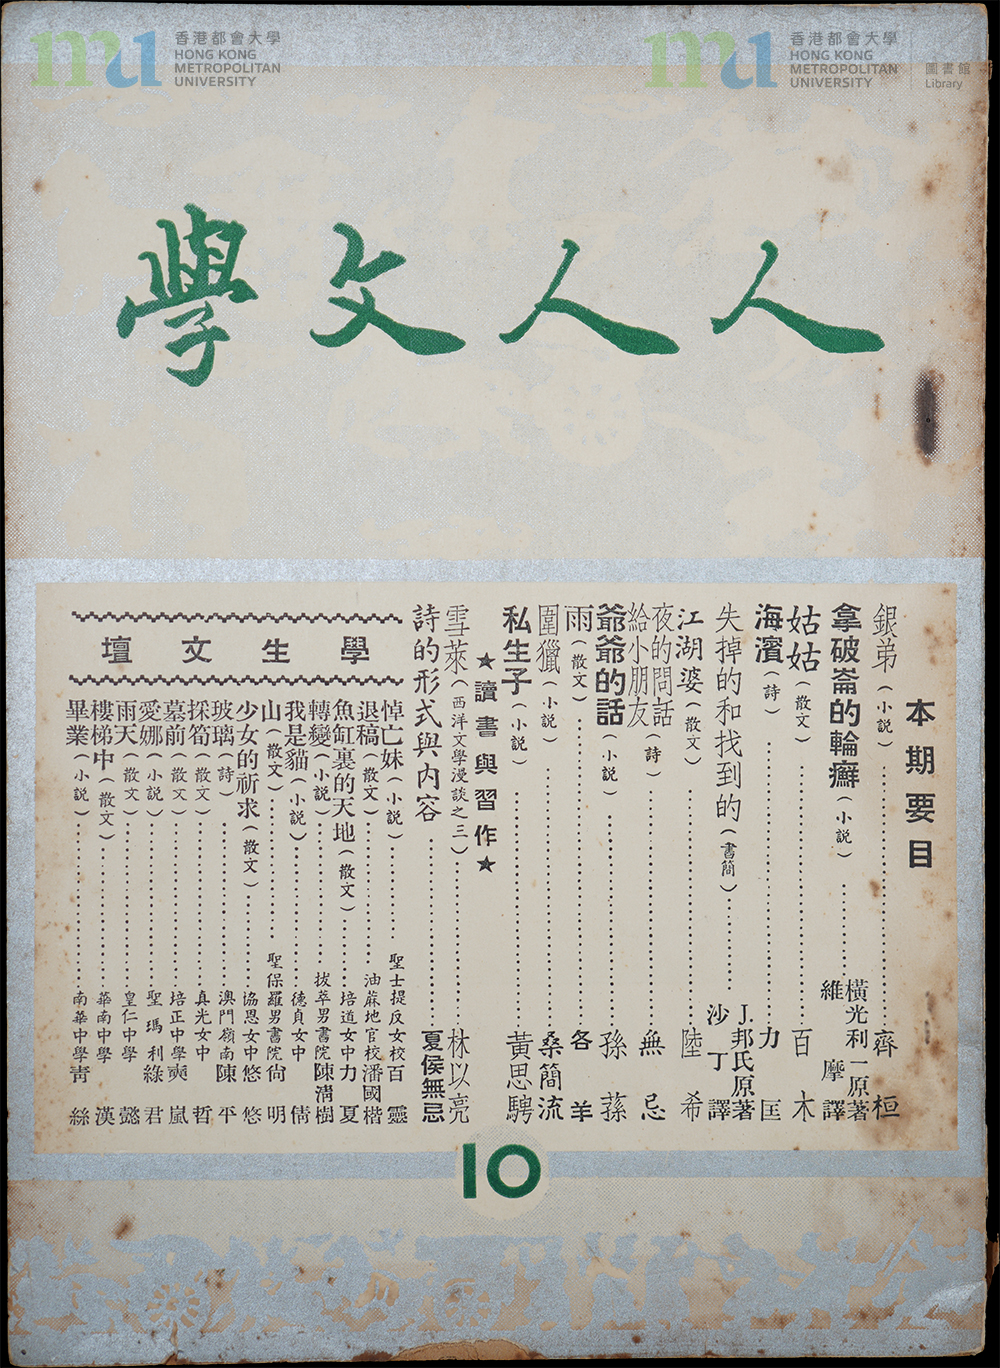 香港都會大學
HONG KONG
METROPOLITAN
UNIVERSITY
香港都會大學
HONG KONG
METROPOLITAN
UNIVERSITY
圖書館
Library
人人文學
本期要目
銀弟（小説）齊桓
拿破崙的輪癬（小説）橫光利一原著
維摩譯
姑姑（散文）百木
海濱（詩）力匡
失掉的和找到的（書簡）J.邦氏原著
沙丁譯
江湖婆（散文）陸希
夜的問話
給小朋友（詩）無忌
爺爺的話（小説）孫蓀
雨（散文）各羊
圍獵（小説）桑簡流
私生子（小説）黃思騁
★讀書與習作★
雪萊（西洋文學漫談之三）林以亮
詩的形式與內容夏侯無忌
學生文壇
悼亡妹（小説）聖士提反女校百靈
退稿（散文）油蔴地官校潘國楷
魚缸裏的天地（散文）培道女中力夏
轉變（小説）拔萃男書院陳清樹
我是貓（小説）德貞女中倩
山（散文）聖保羅男書院尙明
少女的祈求（散文）協恩女中悠悠
玻璃（詩）澳門嶺南陳平
採筍（散文）真光女中哲
墓前（散文）培正中學奭嵐
愛娜（小説）聖瑪利綠君
雨天（散文）皇仁中學懿
樓梯中（散文）華南中學漢
畢業（小説）南華中學靑絲
10